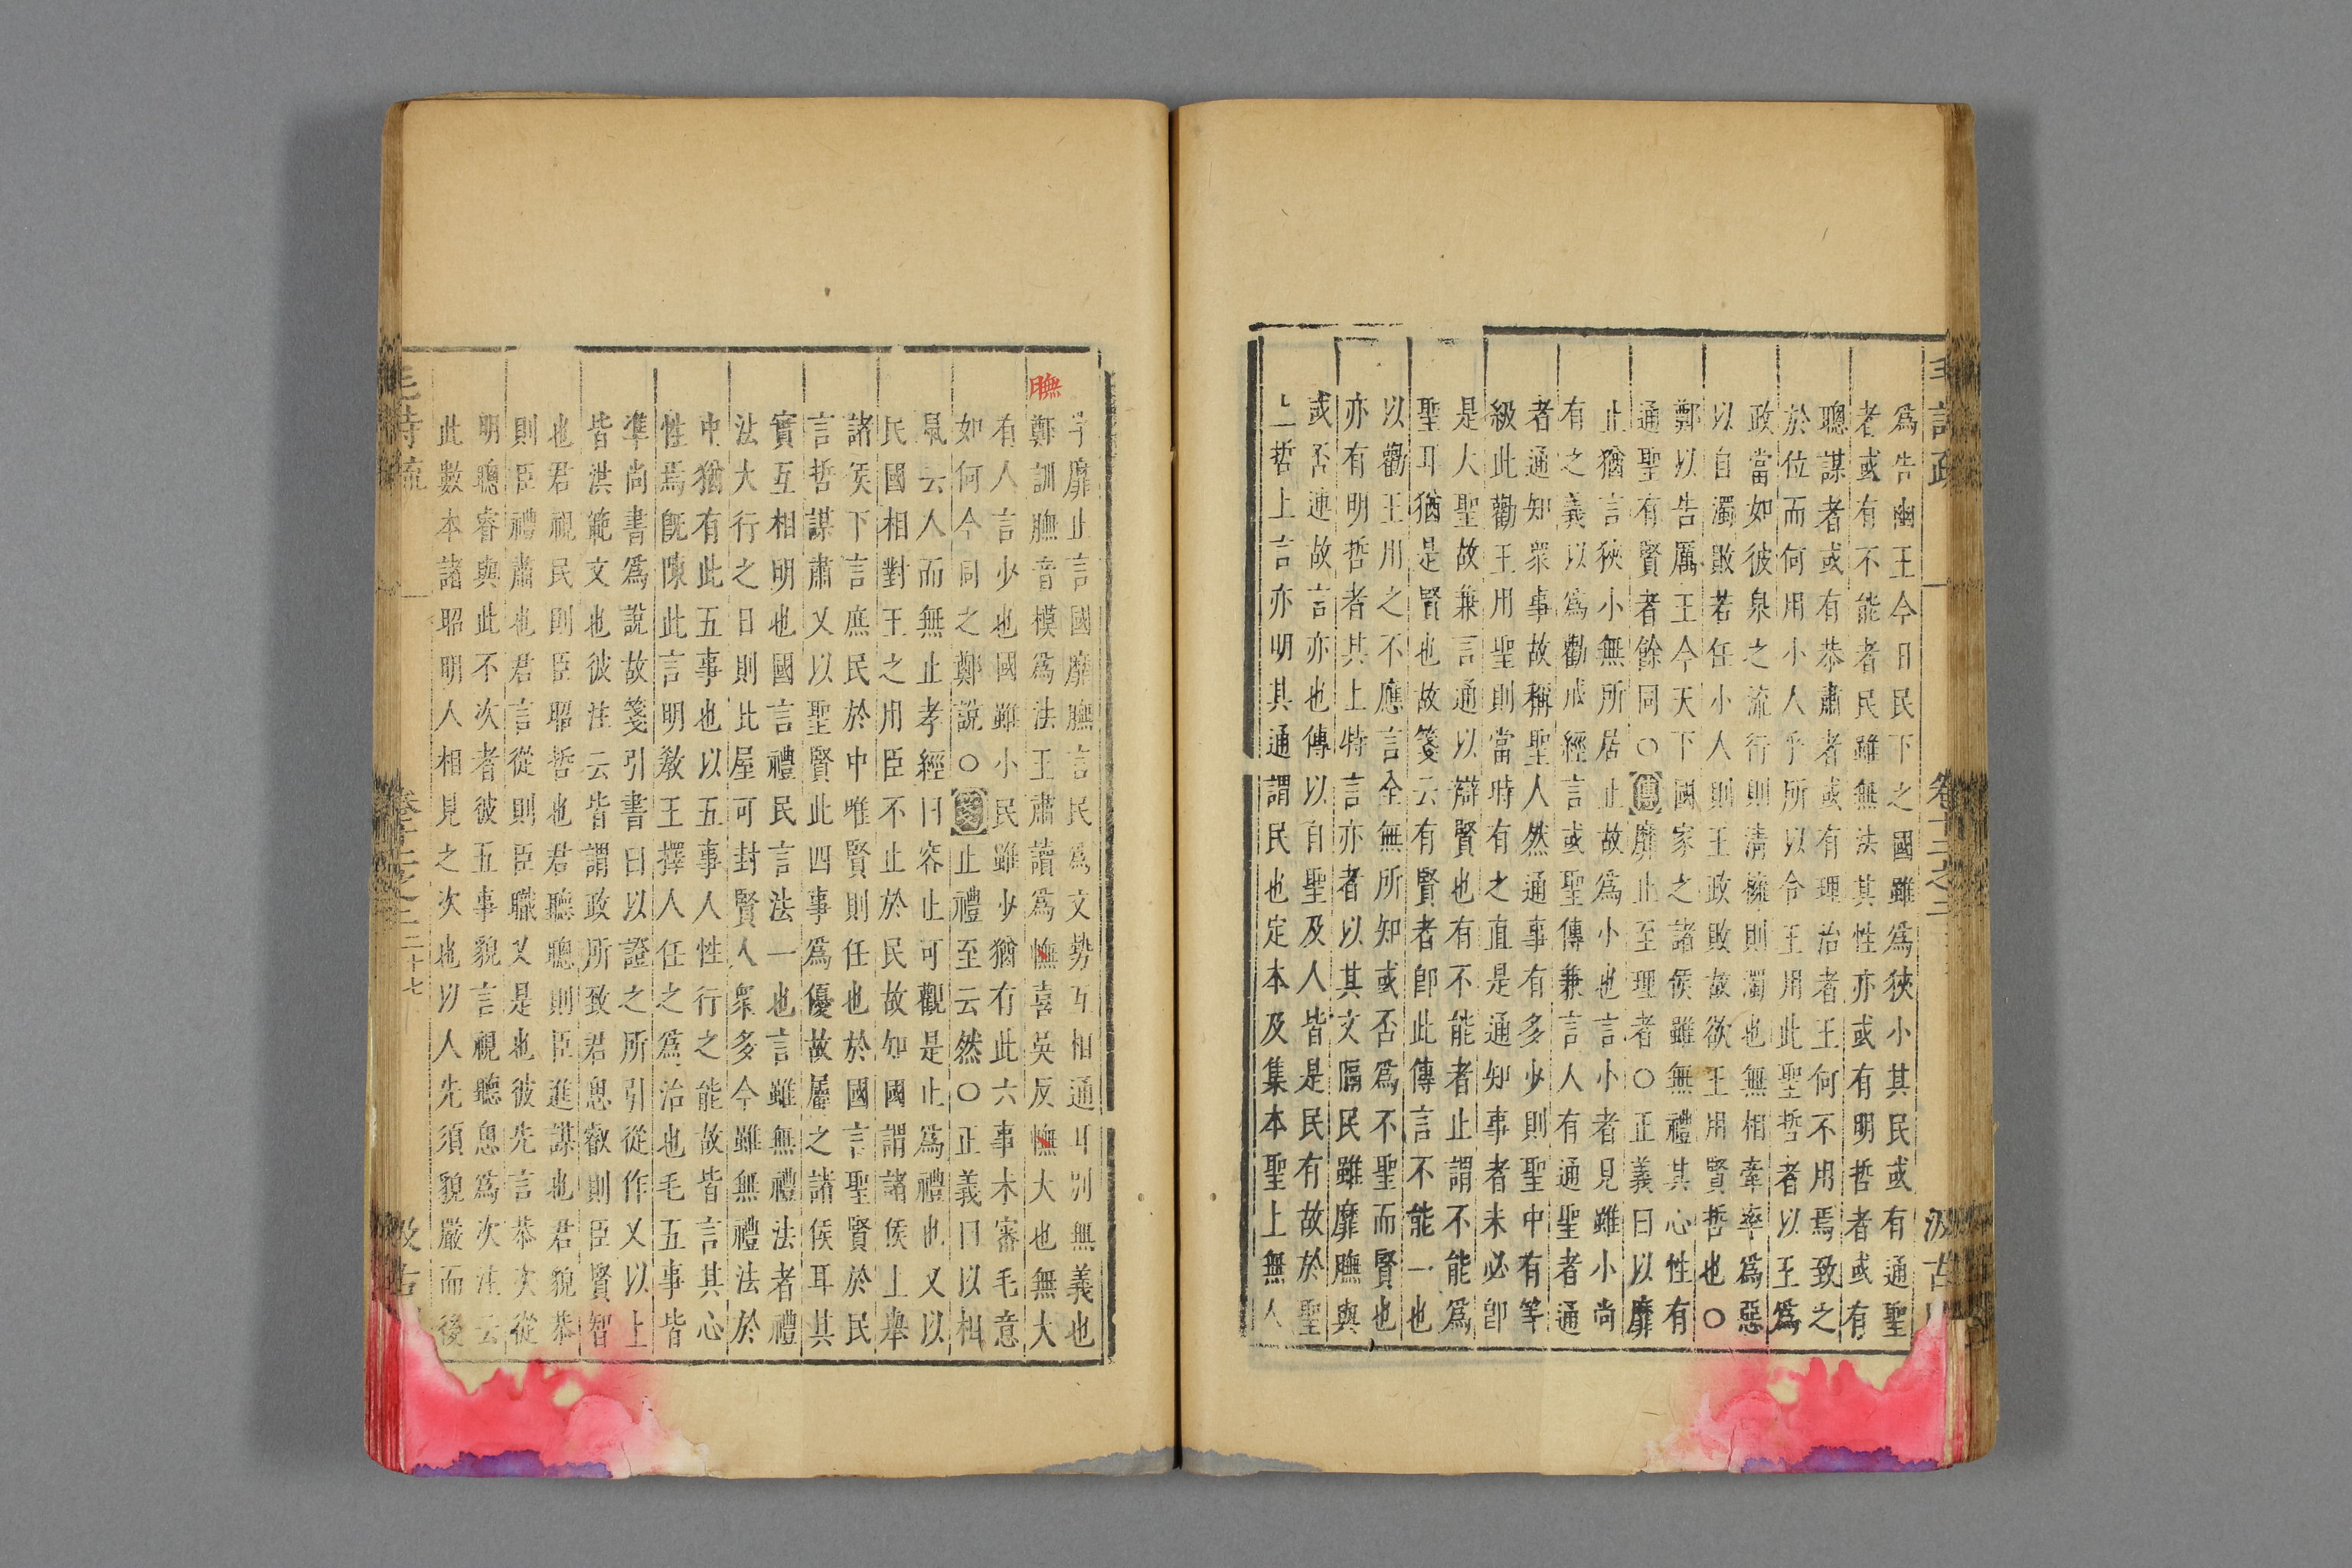 爲告幽王今日民下之國雖爲狹小其民或有通聖
者或有不能者民雖無法其性亦或有明哲者或有
聰謀者或有恭肅者或有理治者王何不用焉致之
於位而何用小人乎所以令王用此聖哲者以王爲
政當如彼泉之流行則清擁則濁也無相牽率爲惡
以自濁敗若任小人則王政敗故欲王用賢哲也○
鄭以告厲王今天下國家之諸侯雖無禮其心性有
通聖有賢者餘同○傳靡止至理者○正義曰以靡
止猶言狹小無所居止故爲小也言小者見雖小尚
有之義以爲勸戒經言或聖傳兼言人有通聖者通
者通知衆事故稱聖人然通事有多少則聖中有等
級此勸王用聖則當時有之直是通知事者未必卽
是大聖故兼言通以辯賢也有不能者止謂不能爲
聖耳猶是賢也故箋云有賢者卽此傳言不能一也
以勸王用之不應言全無所知或否爲不聖而賢也
亦有明哲者其上特言亦者以其文隔民雖靡膴與
或否連故言亦也傳以自聖及人皆是民有故於聖
上哲上言亦明其通謂民也定本及集本聖上無人
毛詩疏 卷十二之二 汲古
字靡止言國靡膴言民爲文勢互相通耳別無義也
膴
鄭訓膴音模爲法王肅讀爲憮喜英反憮大也無大
有人言少也國雖小民雖少猶有此六事未審毛意
如何今同之鄭說○箋止禮至云然○正義曰以相
鼠云人而無止孝經曰容止可觀是止爲禮也又以
民國相對王之用臣不止於民故知國謂諸侯上舉
諸侯下言庶民於中唯賢則任也於國言聖賢於民
言哲謀肅乂以聖賢此四事爲優故屬之諸侯耳其
實互相明也國言禮民言法一也言雖無禮法者禮
法大行之日則比屋可封賢人衆多今雖無禮法於
中猶有此五事也以五事人性行之能故皆言其心
性焉旣陳此言明教王擇人任之爲治也毛五事皆
準尚書爲說故箋引書曰以證之所引從作乂以上
皆洪範文也彼注云皆謂政所致君思叡則臣賢智
也君視民則臣昭哲也君聽聰則臣進謀也君貌恭
則臣禮肅也君言從則臣職乂是也彼先言恭次從
明聰睿與此不次者彼五事貌言視聽思爲次注云
此數本諸昭明人相見之次也以人先須貌嚴而後
毛詩疏 卷十二之二 二十七 汲古